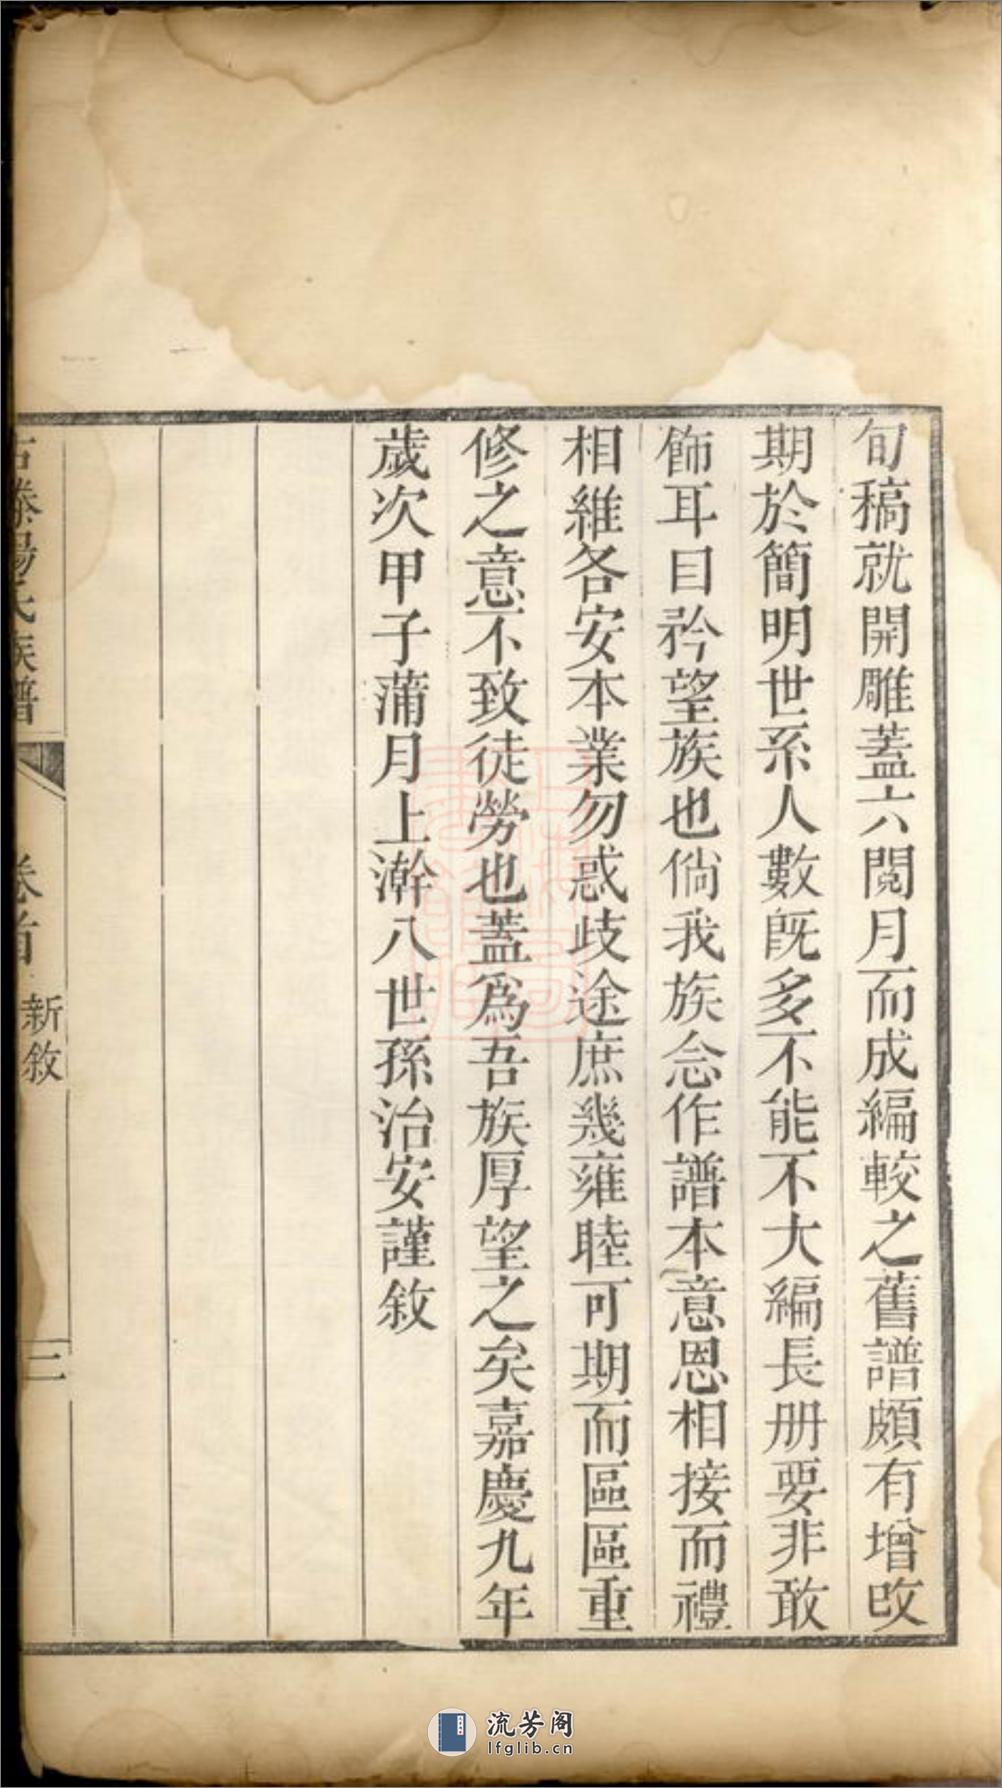 旬稿就開雕蓋六閱月而成編較之舊譜頗有增改
期於簡明世系人數旣多不能不大編長册要非敢
飾耳目矜望族也倘我族念作譜本意恩相接而禮
相維各安本業勿惑歧途庶幾雍睦可期而區區重
修之意不致徒勞也蓋爲吾族厚望之矣嘉慶九年
歲次甲子蒲月上澣八世孫治安謹敘
氏族譜
卷首
新敘
三
流芳阁
lfglib.cn